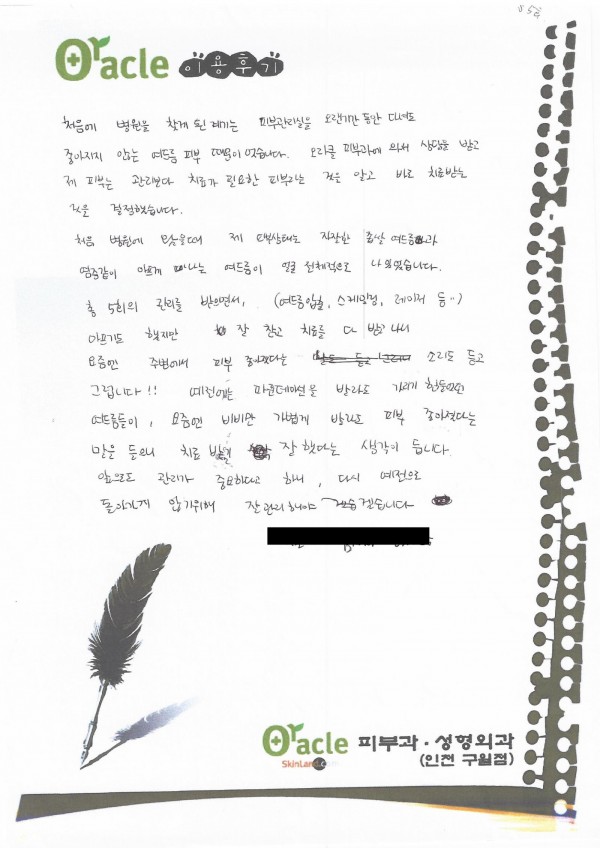 Oracle 이용후기
처음에 병원을 찾게 된 계기는 피부관리실을 오랜기간 동안 다녀도
좋아지지 않는 여드름 피부 때문이었습니다. 오라클 피부과에 와서 상담을 받고
제 피부는 관리보다 치료가 필요한 피부라는 것을 알고 바로 치료받는
것을 결정했습니다.
처음 병원에 왔을때 제 피부상태는 자잘한 좁쌀 여드름과
염증같이 아프게 나는 여드름이 얼굴 전체적으로 나 있었습니다.
총 5회의 관리를 받으면서, (여드름압출, 스케일링, 레이저 등..)
아프기도 했지만 잘 참고 치료를 다 받고 나서
요즘엔 주변에서 피부 좋아졌다는 소리도 듣고
그럽니다!! 예전에는 파운데이션을 발라도 가리기 힘들었던
여드름들이, 요즘엔 비비만 가볍게 발라도 피부 좋아졌다는
말을 들으니 치료 받길 잘 했다는 생각이 듭니다.
앞으로도 관리가 중요하다고 하니, 다시 예전으로
돌아가지 않기위해 잘 관리해야 겠습니다
Oracle 피부과·성형외과
SkinLand
(인천 구월점)